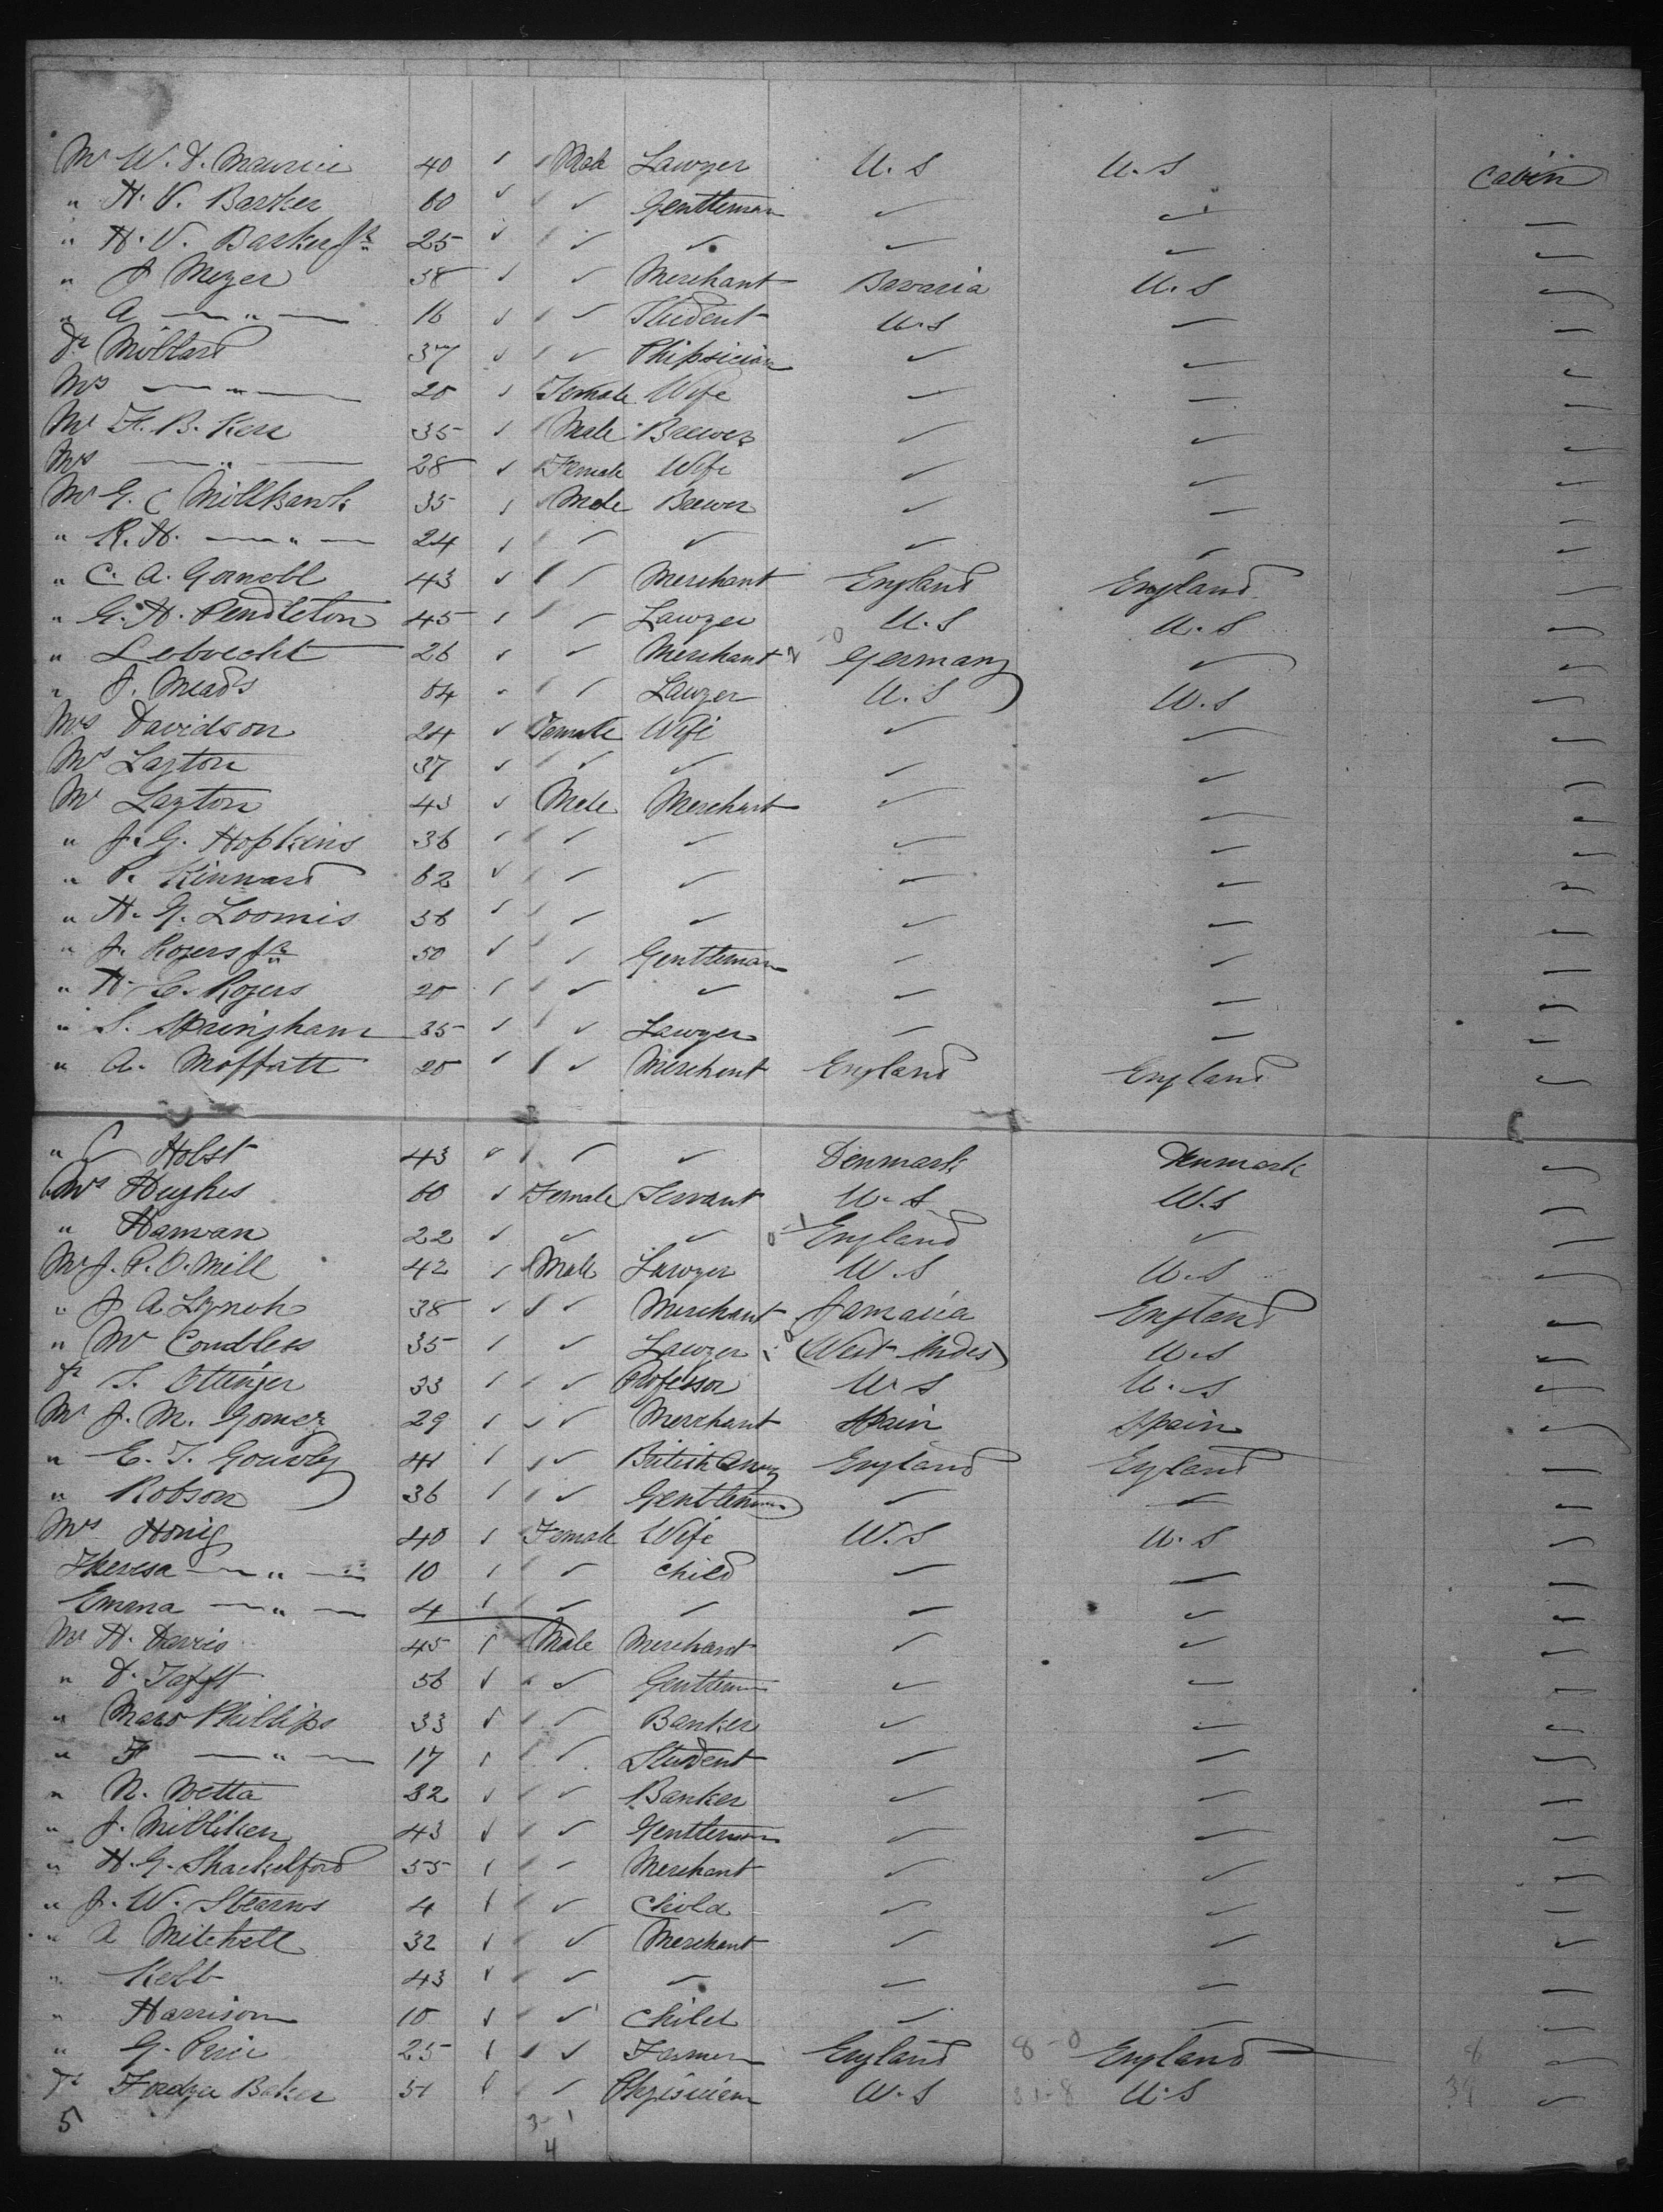 Mr W. D. Maurice 40 ✓ Male Lawyer U. S U. S Cabin
" H. V. Barker 60 ✓ ✓ Gentleman ✓ ✓ —
" H. V. Barker Jr 25 ✓ ✓ ✓ ✓ ✓ —
" J Meyer 38 ✓ ✓ Merchant Bavaria U. S —
" A — " — 16 ✓ ✓ Student U. S — —
Dr Mollard 37 ✓ ✓ Phipsician ✓ — —
Mrs — " — 20 ✓ Female Wife ✓ — —
Mr F. B. Kerr 35 ✓ Male Brewer ✓ — —
Mrs — " — 28 ✓ Female Wife ✓ — —
Mr G. C Millbank 35 ✓ Male Brewer ✓ — —
" R. H. — " — 24 ✓ ✓ ✓ ✓ ✓ —
" C. A. 43 ✓ ✓ Merchant England England —
" G. H. Pendleton 45 ✓ ✓ Lawyer U. S U. S —
" Lebrecht 26 ✓ ✓ Merchant Germany ✓ —
" J. Meads 64 ✓ ✓ Lawyer U. S U. S —
Mrs Davidson 24 ✓ Female Wife ✓ — —
Mrs Layton 37 ✓ ✓ ✓ ✓ — —
Mr Layton 43 ✓ Male Merchant ✓ — —
" J. G. Hopkins 36 ✓ ✓ ✓ ✓ — —
" P. Kinnard 62 ✓ ✓ ✓ — — —
" H. G. Loomis 36 ✓ ✓ ✓ ✓ — —
" J. Rogers Jr 50 ✓ ✓ Gentleman — — —
" H. C. Rogers 20 ✓ ✓ ✓ — — —
" S. Springham 35 ✓ ✓ Lawyer — — —
" A. Moffatt 25 ✓ ✓ Merchent England England —
" C Holst 43 ✓ ✓ ✓ Denmark Denmark —
Mrs Hughes 60 ✓ Female Servant U. S U. S —
" Harwan 22 ✓ ✓ ✓ England ✓ —
Mr J. P. O. Mill 42 ✓ Male Lawyer U. S U. S —
" J. A. Lynch 38 ✓ ✓ Merchant Jamaica England —
" Mr 35 ✓ ✓ Lawyer (West Indies) U. S —
Dr S. Ottinger 33 ✓ ✓ Professor U. S U. S —
Mr J. M. Gomez 29 ✓ ✓ Merchant Spain Spain —
" E. T. 41 ✓ ✓ British Army England England —
" Robson 36 ✓ ✓ Gentleman ✓ ✓ —
Mrs Honig 40 ✓ Female Wife U. S U. S —
Theresa — " — 10 ✓ ✓ Child ✓ — —
Emma — " — 4 ✓ ✓ ✓ ✓ ✓ —
Mr H. Harris 45 ✓ Male Merchant ✓ ✓ —
" D. Tafft 56 ✓ ✓ Gentleman ✓ — —
" Marc Phillips 33 ✓ ✓ Banker ✓ — —
" F — " — 17 ✓ ✓ Student ✓ — —
" N. Netta 32 ✓ ✓ Banker ✓ — —
" J. Milliken 43 ✓ ✓ Gentleman ✓ — —
" H. G. Shackelford 55 ✓ ✓ Merchant ✓ ✓ —
" J. W. Stearns 4 ✓ ✓ Child ✓ ✓ —
" A Mitchell 32 ✓ ✓ Merchant ✓ ✓ ✓
" Kebb 43 ✓ ✓ ✓ ✓ — —
" Harrison 10 ✓ ✓ Child ✓ — —
" G. Price 25 ✓ ✓ Farmer England 8-0 England 8 —
Dr Baker 51 ✓ ✓ Phyisicien U. S U. S —
5 3-1
4